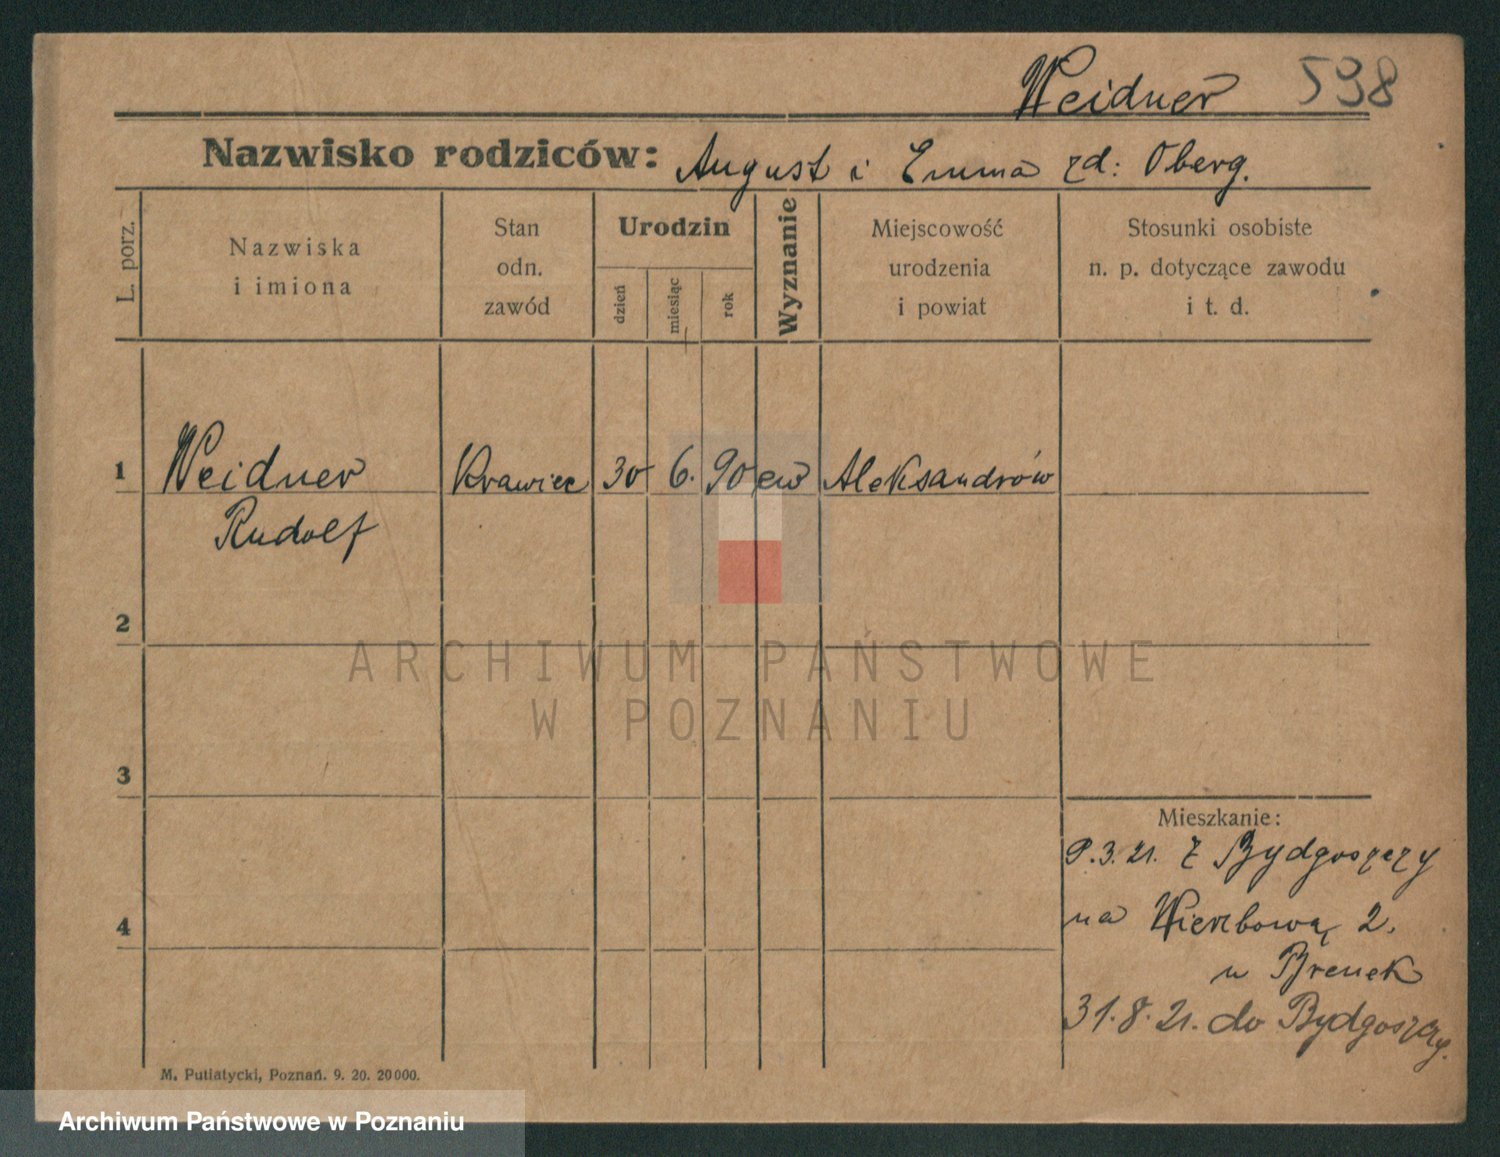 Weidner 598
Nazwisko rodziców: August i Emma zd: Oberg.
L. porz.
Nazwiska
i imiona
Stan
odn.
zawód
Urodzin
dzień
miesiąc
rok
Wyznanie
Miejscowość
urodzenia
i powiat
Stosunki osobiste
n. p. dotyczące zawodu
i t. d.
1 Weidner Krawiec 30 6. 90 ew Aleksandrów
Rudolf
2
3
4
ARCHIWUM PAŃSTWOWE
W POZNANIU
Mieszkanie:
9.3.21. z Bydgoszczy
na Wierzbową 2.
u Brenek
31.8.21. do Bydgoszczy.
M. Putiatycki, Poznań. 9. 20. 20000.
Archiwum Państwowe w Poznaniu